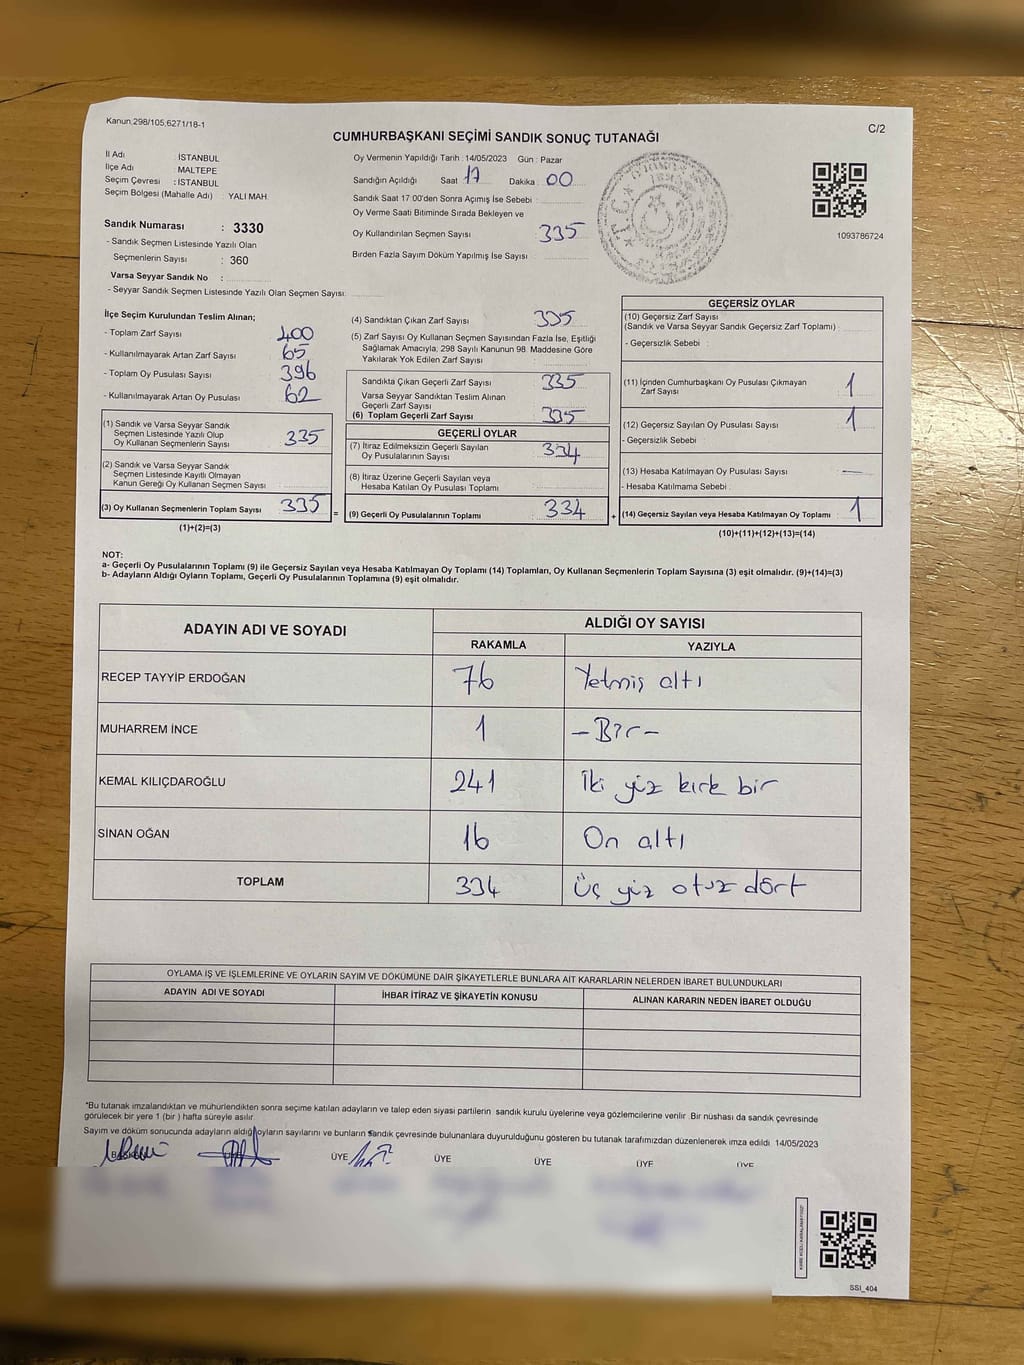 Kanun:298/105,6271/18-1
C/2
CUMHURBAŞKANI SEÇİMİ SANDIK SONUÇ TUTANAĞI
İl Adı : İSTANBUL
İlçe Adı : MALTEPE
Seçim Çevresi : İSTANBUL
Seçim Bölgesi (Mahalle Adı) : YALI MAH.
Sandık Numarası : 3330
- Sandık Seçmen Listesinde Yazılı Olan
Seçmenlerin Sayısı : 360
Varsa Seyyar Sandık No :
- Seyyar Sandık Seçmen Listesinde Yazılı Olan Seçmen Sayısı:
Oy Vermenin Yapıldığı Tarih : 14/05/2023 Gün : Pazar
Sandığın Açıldığı Saat 17 Dakika : 00
Sandık Saat 17:00'den Sonra Açımış İse Sebebi :
Oy Verme Saati Bitiminde Sırada Bekleyen ve
Oy Kullandırılan Seçmen Sayısı 335
Birden Fazla Sayım Döküm Yapılmış İse Sayısı
1093786724
İlçe Seçim Kurulundan Teslim Alınan;
- Toplam Zarf Sayısı 400
- Kullanılmayarak Artan Zarf Sayısı 65
- Toplam Oy Pusulası Sayısı 396
- Kullanılmayarak Artan Oy Pusulası 62
(1) Sandık ve Varsa Seyyar Sandık
Seçmen Listesinde Yazılı Olup
Oy Kullanan Seçmenlerin Sayısı 335
(2) Sandık ve Varsa Seyyar Sandık
Seçmen Listesinde Kayıtlı Olmayan
Kanun Gereği Oy Kullanan Seçmen Sayısı :
(3) Oy Kullanan Seçmenlerin Toplam Sayısı 335
(1)+(2)=(3)
=
(4) Sandıktan Çıkan Zarf Sayısı 335
(5) Zarf Sayısı Oy Kullanan Seçmen Sayısından Fazla İse, Eşitliği
Sağlamak Amacıyla; 298 Sayılı Kanunun 98. Maddesine Göre
Yakılarak Yok Edilen Zarf Sayısı
Sandıkta Çıkan Geçerli Zarf Sayısı 335
Varsa Seyyar Sandıktan Teslim Alınan
Geçerli Zarf Sayısı
(6) Toplam Geçerli Zarf Sayısı 335
GEÇERLİ OYLAR
(7) İtiraz Edilmeksizin Geçerli Sayılan
Oy Pusulalarının Sayısı 334
(8) İtiraz Üzerine Geçerli Sayılan veya
Hesaba Katılan Oy Pusulası Toplamı
(9) Geçerli Oy Pusulalarının Toplamı 334
+
GEÇERSİZ OYLAR
(10) Geçersiz Zarf Sayısı
(Sandık ve Varsa Seyyar Sandık Geçersiz Zarf Toplamı)
- Geçersizlik Sebebi :
(11) İçinden Cumhurbaşkanı Oy Pusulası Çıkmayan
Zarf Sayısı 1
(12) Geçersiz Sayılan Oy Pusulası Sayısı 1
- Geçersizlik Sebebi
(13) Hesaba Katılmayan Oy Pusulası Sayısı —
- Hesaba Katılmama Sebebi :
(14) Geçersiz Sayılan veya Hesaba Katılmayan Oy Toplamı 1
(10)+(11)+(12)+(13)=(14)
NOT:
a- Geçerli Oy Pusulalarının Toplamı (9) ile Geçersiz Sayılan veya Hesaba Katılmayan Oy Toplamı (14) Toplamları, Oy Kullanan Seçmenlerin Toplam Sayısına (3) eşit olmalıdır. (9)+(14)=(3)
b- Adayların Aldığı Oyların Toplamı, Geçerli Oy Pusulalarının Toplamına (9) eşit olmalıdır.
ADAYIN ADI VE SOYADI ALDIĞI OY SAYISI
RAKAMLA YAZIYLA
RECEP TAYYİP ERDOĞAN 76 Yetmiş altı
MUHARREM İNCE 1 -Bir-
KEMAL KILIÇDAROĞLU 241 İki yüz kırk bir
SİNAN OĞAN 16 On altı
TOPLAM 334 Üç yüz otuz dört
OYLAMA İŞ VE İŞLEMLERİNE VE OYLARIN SAYIM VE DÖKÜMÜNE DAİR ŞİKAYETLERLE BUNLARA AİT KARARLARIN NELERDEN İBARET BULUNDUKLARI
ADAYIN ADI VE SOYADI İHBAR İTİRAZ VE ŞİKAYETİN KONUSU ALINAN KARARIN NEDEN İBARET OLDUĞU
*Bu tutanak imzalandıktan ve mühürlendikten sonra seçime katılan adayların ve talep eden siyasi partilerin sandık kurulu üyelerine veya gözlemcilerine verilir. Bir nüshası da sandık çevresinde
görülecek bir yere 1 (bir ) hafta süreyle asılır.
Sayım ve döküm sonucunda adayların aldığı oyların sayılarını ve bunların sandık çevresinde bulunanlara duyurulduğunu gösteren bu tutanak tarafımızdan düzenlenerek imza edildi. 14/05/2023
ÜYE ÜYE ÜYE ÜYE ÜYE
SSİ_404